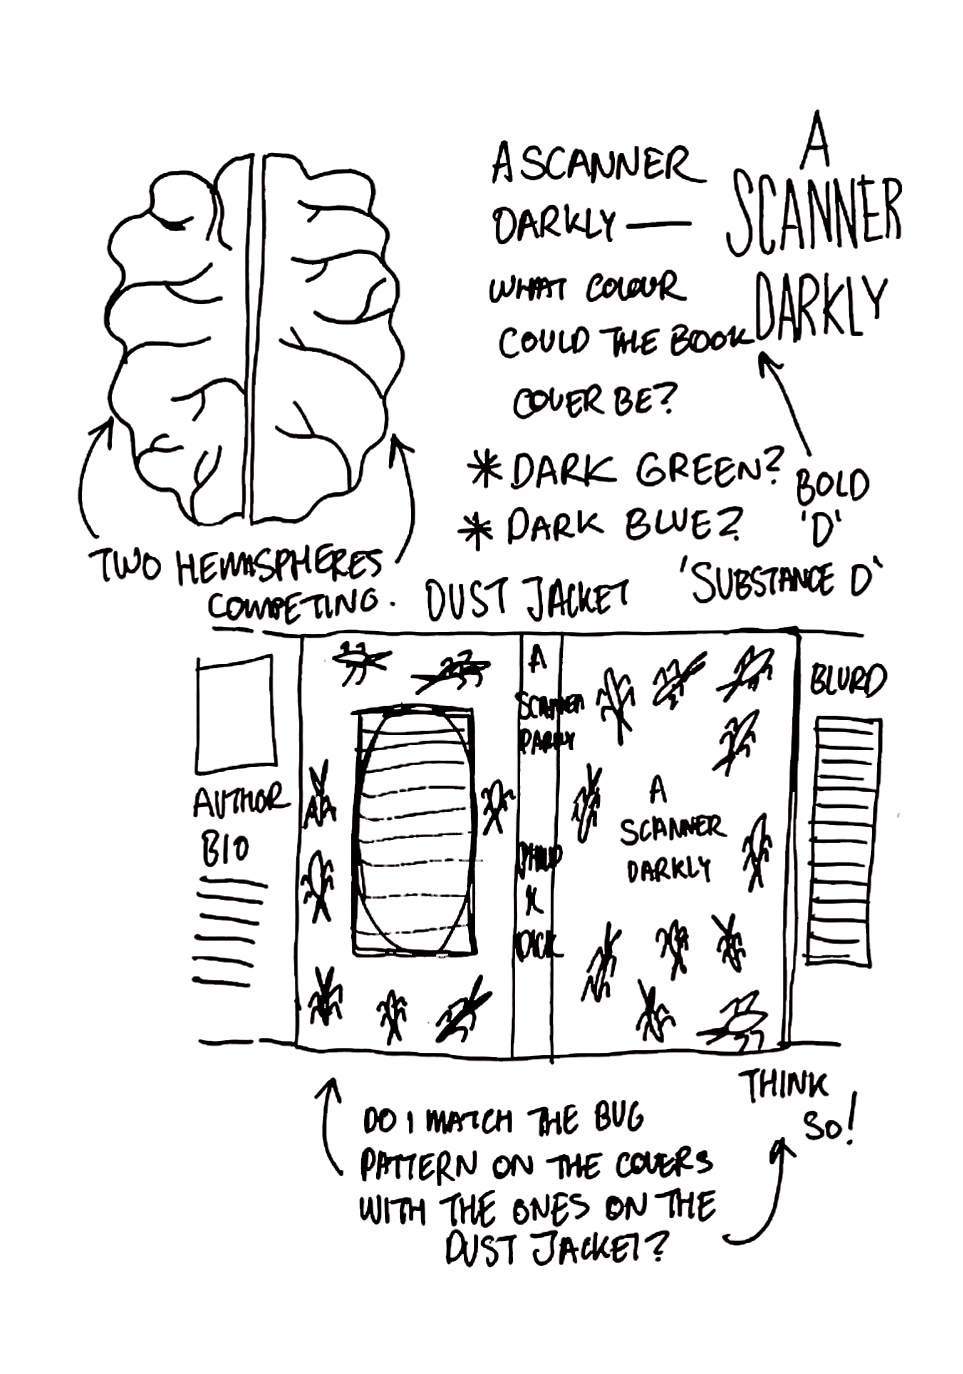 A SCANNER
DARKLY —
WHAT COLOUR
COULD THE BOOK
COVER BE?
* DARK GREEN?
* DARK BLUE?
A
SCANNER
DARKLY
BOLD
'D'
'SUBSTANCE D'
TWO HEMISPHERES
COMPETING.
DUST JACKET
AUTHOR
BIO
A
SCANNER
DARKLY
PHILIP
K
DICK
A
SCANNER
DARKLY
BLURD
DO I MATCH THE BUG
PATTERN ON THE COVERS
WITH THE ONES ON THE
DUST JACKET?
THINK
SO!